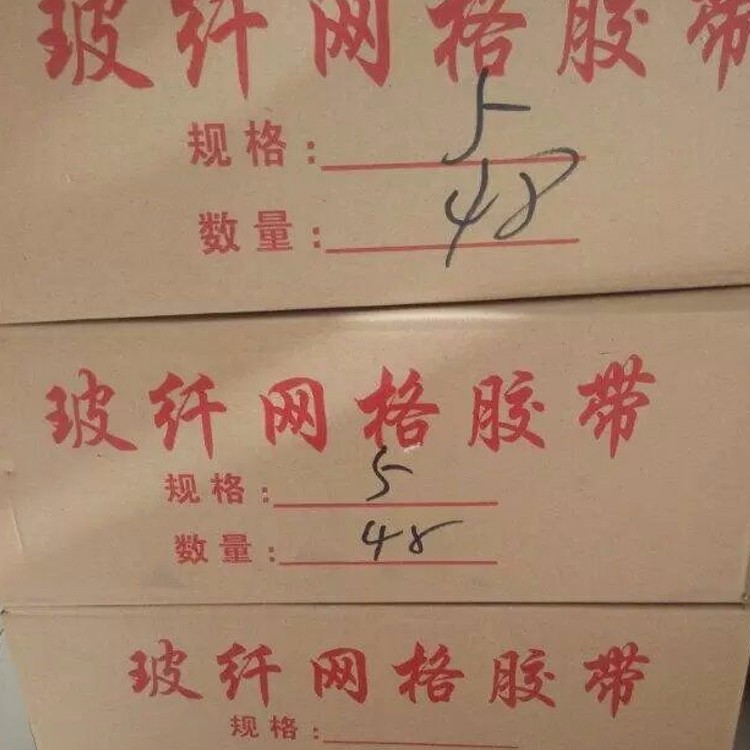 玻纤网格胶带
规格：5
数量：48
玻纤网格胶带
规格：5
数量：48
玻纤网格胶带
规格：